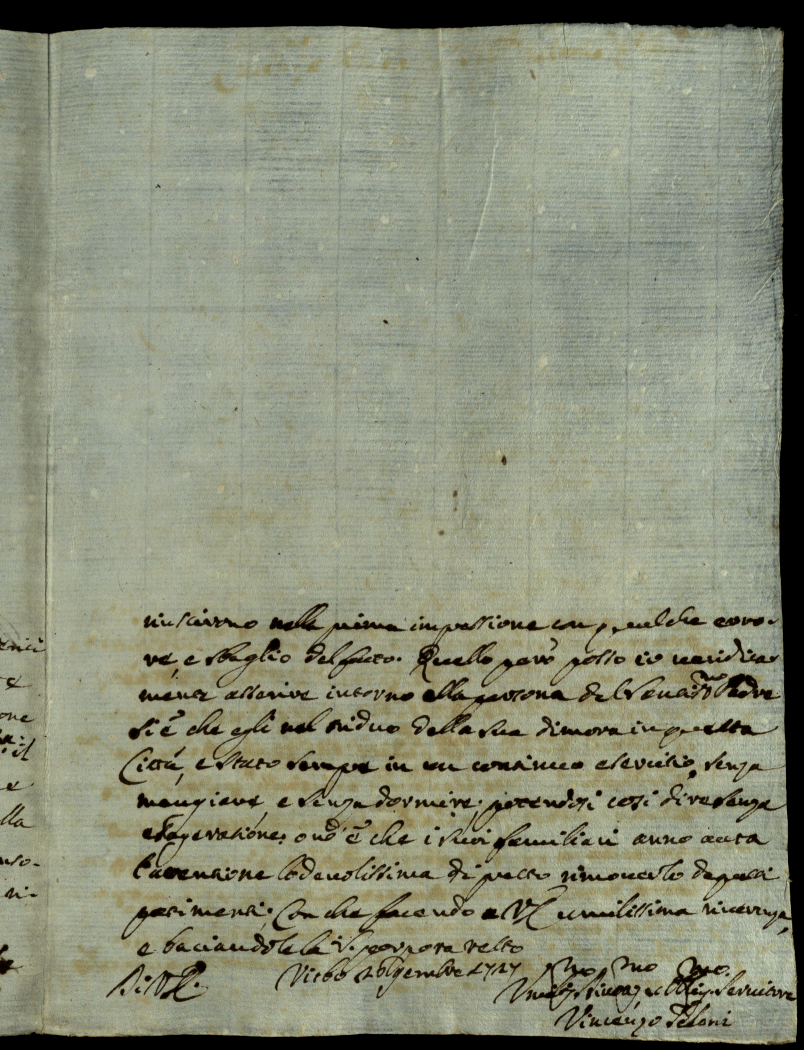 riuscirono nella prima impressione con qualche erro-
re, e sbaglio del fatto. Quello però posso io veridica-
mente asserire intorno alla persona del Santis.mo Padre
si è che egli nel triduo della sua dimora in questa
Città, e stato sempre in un continuo esercitio, senza
mangiare, e senza dormire, potendosi così dire senza
esageratione; ond'è che i suoi familiari anno auta
l'attentione lodevolissima di presto rimoverlo da questi
patimenti; Con che facendo a VE umilissima riverenza,
e baciandole la S. porpora resto
Di VE.
Viterbo 1727
mo mo mo
Servitore
Vincenzo
enici
e
one
il
e
lla
ri-